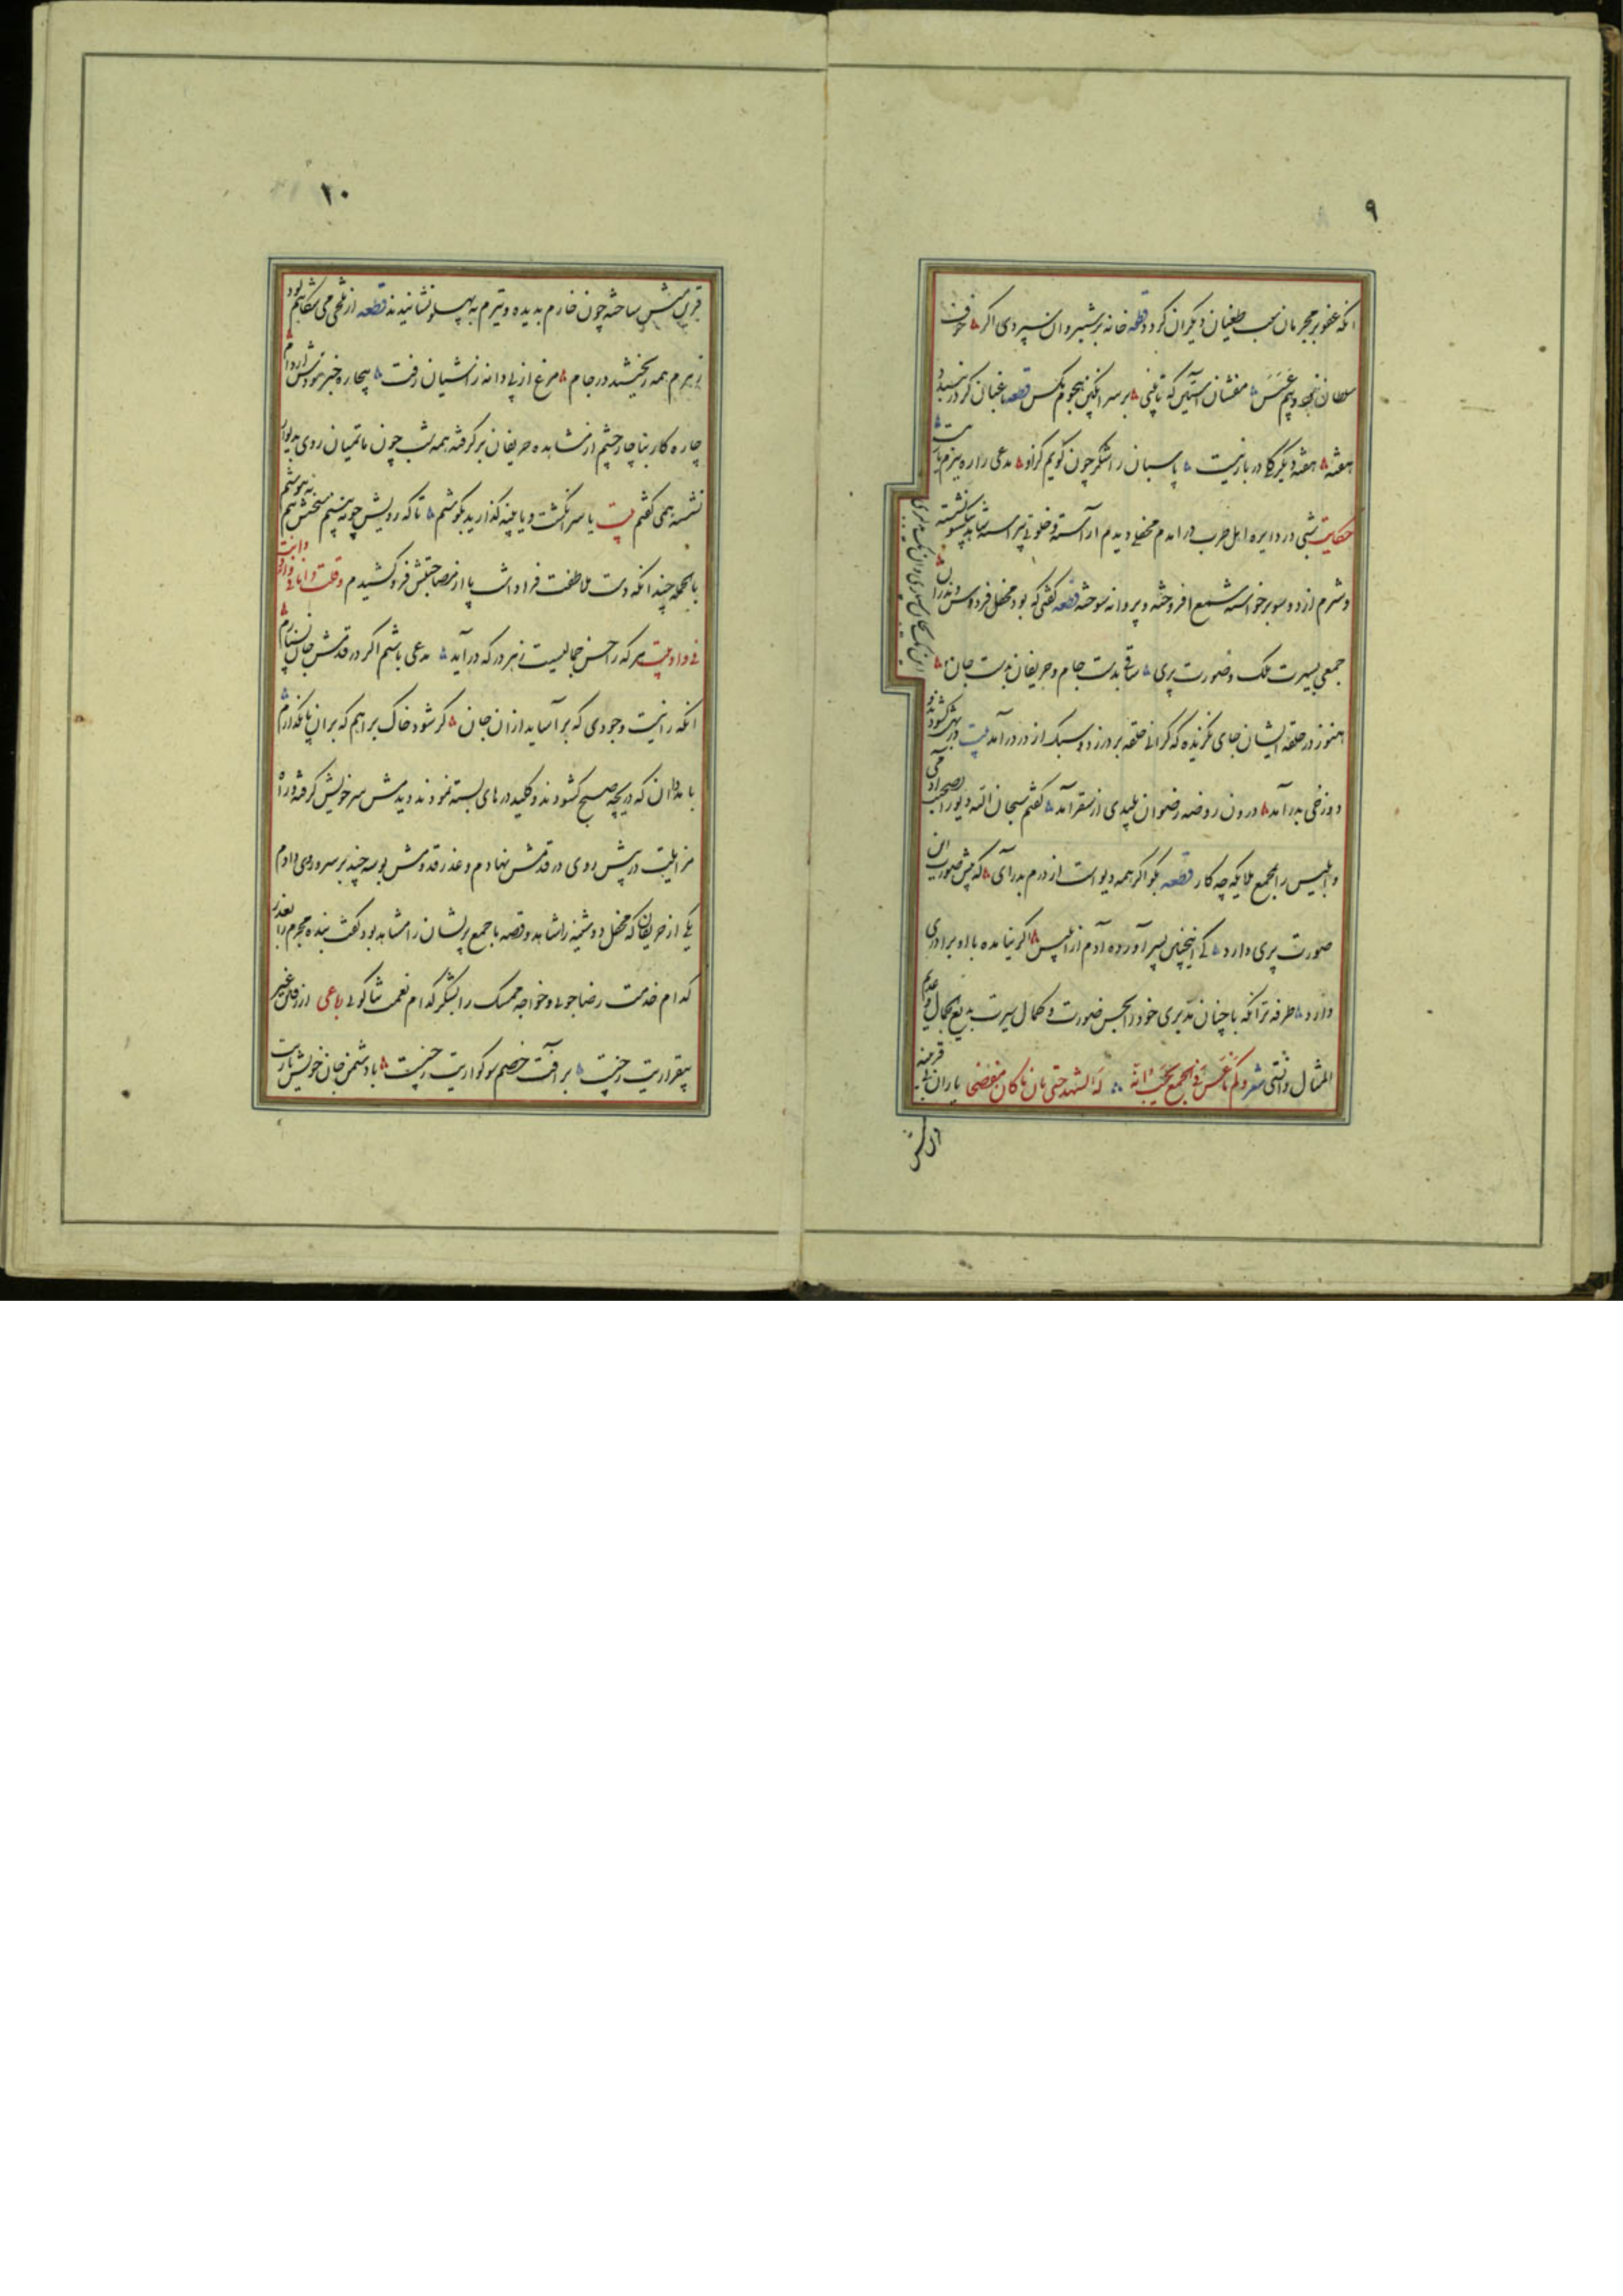 ۹
انکه عفو بر مجرمان سبب طغیان دیکران کردد قطعه خانه بر شبیروان نسپردی اکر
سلطان و بیم عسس منفشان آستین که تا بینی بر سر انکبین هجوم مکس قطعه باغبان کر در نبندد
هفته هفته دیکر کلی در بار نیست پاسبان را شکر چون کویم کزاو مدعی را ره ببزم یار نیست
حکایت شبی در دایره اهل طرب در امدم محفلی دیدم اراسته و خلوتی پیراسته شاهد بیکسو نشسته
و شرم از دو سو برخواسته شمع افروخته و پروانه سوخته قطعه کفتی که بود محفل فردوس و ندران
جمعی بسیرت ملک و صورت پری ساقی بدست جام و حریفان بدست جان
هنوز در حلقه ایشان جای نکزیده که کرانی حلقه بر در زد و سبک از در درآمد بیت در بهشت کشودند و
دوزخی بدر آمد درون روضه رضوان پلیدی از سقر آمد کفتم سبحان الله دیو را بصحبت آدمی
و ابلیس را بمجمع ملایکه چه کار قطعه بکو اکر همه دیو است از درم بدر آی که پیش صورت این
صورت پری دارد کی اینچنین پسر آورده آدم از ابلیس اکر نیامده با او برادری
دارد طرفه تر انکه با چنان تدبری خود را بحسن صورت و کمال سیرت بدیع الجمال و عدیم
المثال دانستی شعر و لم نامحسن فی الجمع یحسب انه له الشهد حتی بان ما کان مبغضا یاران بی قرینه
۱۰
قرین منش ساخته چون خارم بدیده و تیرم به پهلو نشانیدند قطعه از تلخی می شکایتم بود
زهرم همه ریختند در جام مرغ از پی دانه ز اشیان رفت بیچاره خبر نبودش از دام
چاره کار بناچار چشم از مشاهده حریفان برکرفته همه شب چون ماتمیان روی بدیوار
نشسته همی کفتم بیت یا سر انکشت و یا پنبه کذارید بکوشم تا که رویش چو نه بینم سخنش هم نه نیوشم
بالجمله چندانکه دست ملاطفت فرا داشت پا از مصاحبتش فرو کشیدم و قلت
فی وادیت هر که را حسن جمالیست ز هر در که در آید مدعی باشم اکر در قدمش جان نسپارم
انکه را نیست وجودی که بر آساید از ان جان کر شود خاک براهم که بر ان پا نکذارم
بامدادان که دریچه صبح کشودند و کلید در های بسته نمودند دیدمش سر خویش کرفته و راه
منزل بیت در پیش روی در قدمش نهادم و عذر قدومش بوسه چند بر سر و روی دادم
یکی از حریفان که محفل دوشینه را شاهد و قصه با جمع پریشان را مشاهد بود کفت بنده مجرم را بعذر
کدام خدمت رضا جوئی و خواجه ممسک را بشکر کدام نعمت ثنا کوئی رباعی از رفتن غیر
بیقراریت ز چیست بر آفت خصم سوکواریت ز چیست با دشمن جان خویش یاریت